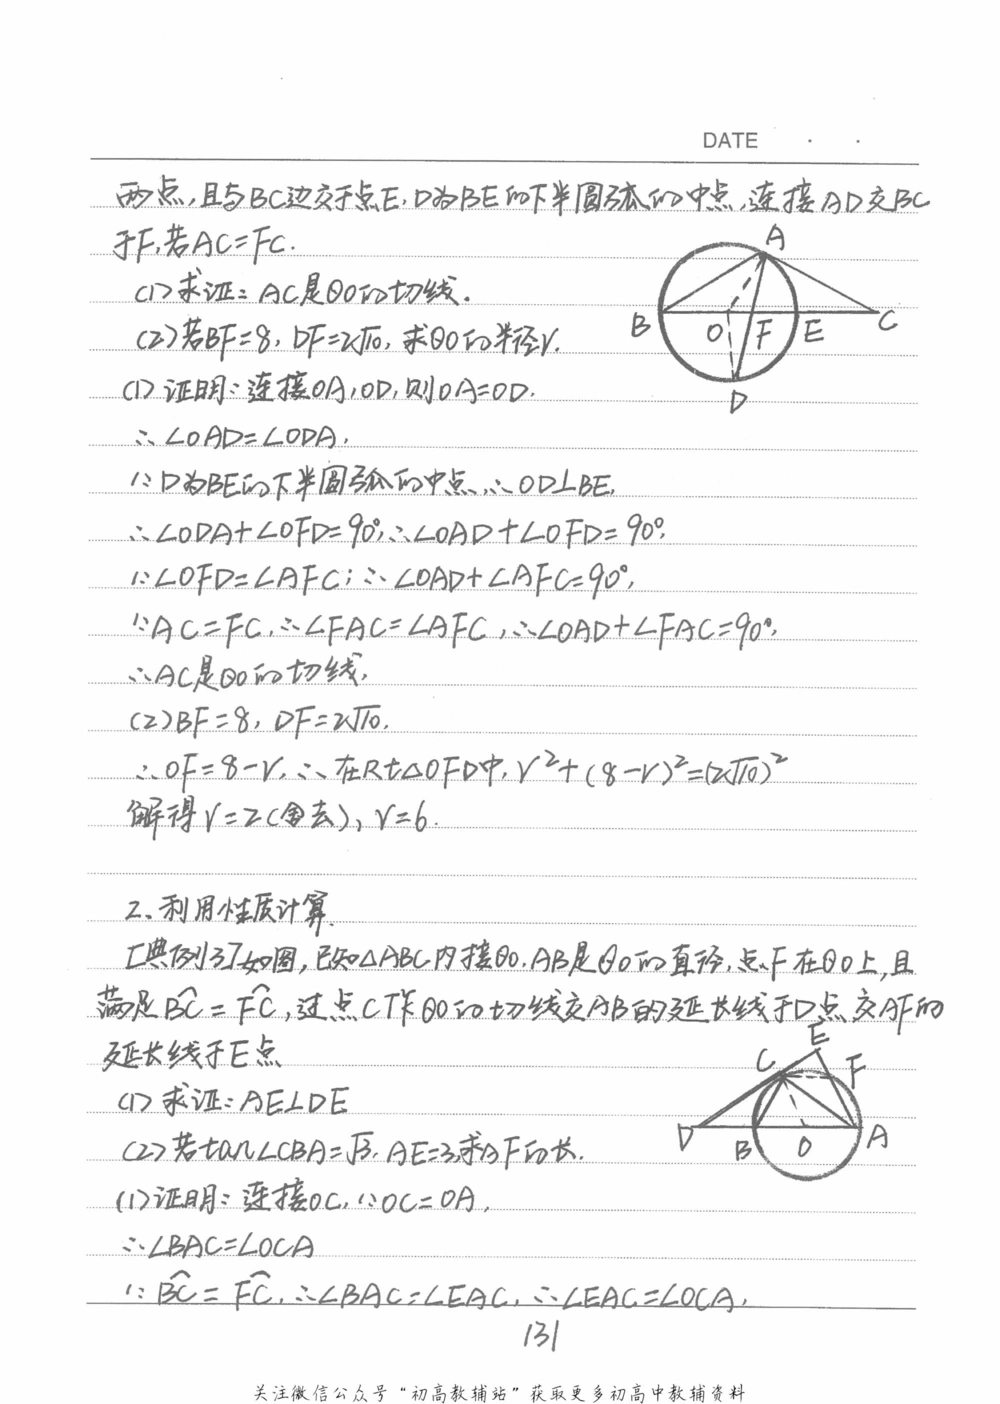 DATE · ·
两点,且与BC边交于点E,D为BE的下半圆弧的中点,连接AD交BC
于F,若AC=FC.
(1)求证:AC是⊙O的切线.
(2)若BF=8,DF=2√10,求⊙O的半径r.
A
B O F E C
D
(1)证明:连接OA,OD,则OA=OD.
∴∠OAD=∠ODA,
∵D为BE的下半圆弧的中点,∴OD⊥BE,
∴∠ODA+∠OFD=90°,∴∠OAD+∠OFD=90°,
∵∠OFD=∠AFC;∴∠OAD+∠AFC=90°,
∵AC=FC,∴∠FAC=∠AFC,∴∠OAD+∠FAC=90°,
∴AC是⊙O的切线,
(2)BF=8,DF=2√10,
∴OF=8-r,∴在Rt△OFD中,r²+(8-r)²=(2√10)²
解得r=2(舍去),r=6.
2、利用性质计算.
[典例3]如图,已知△ABC内接⊙O,AB是⊙O的直径,点F在⊙O上,且
满足B͡C=F͡C,过点C作⊙O的切线交AB的延长线于D点,交AF的
延长线于E点
E
C F
D B O A
(1)求证:AE⊥DE
(2)若tan∠CBA=√3,AE=3,求AF的长.
(1)证明:连接OC,∵OC=OA,
∴∠BAC=∠OCA
∵B͡C=F͡C,∴∠BAC=∠EAC,∴∠EAC=∠OCA,
131
关注微信公众号“初高教辅站”获取更多初高中教辅资料